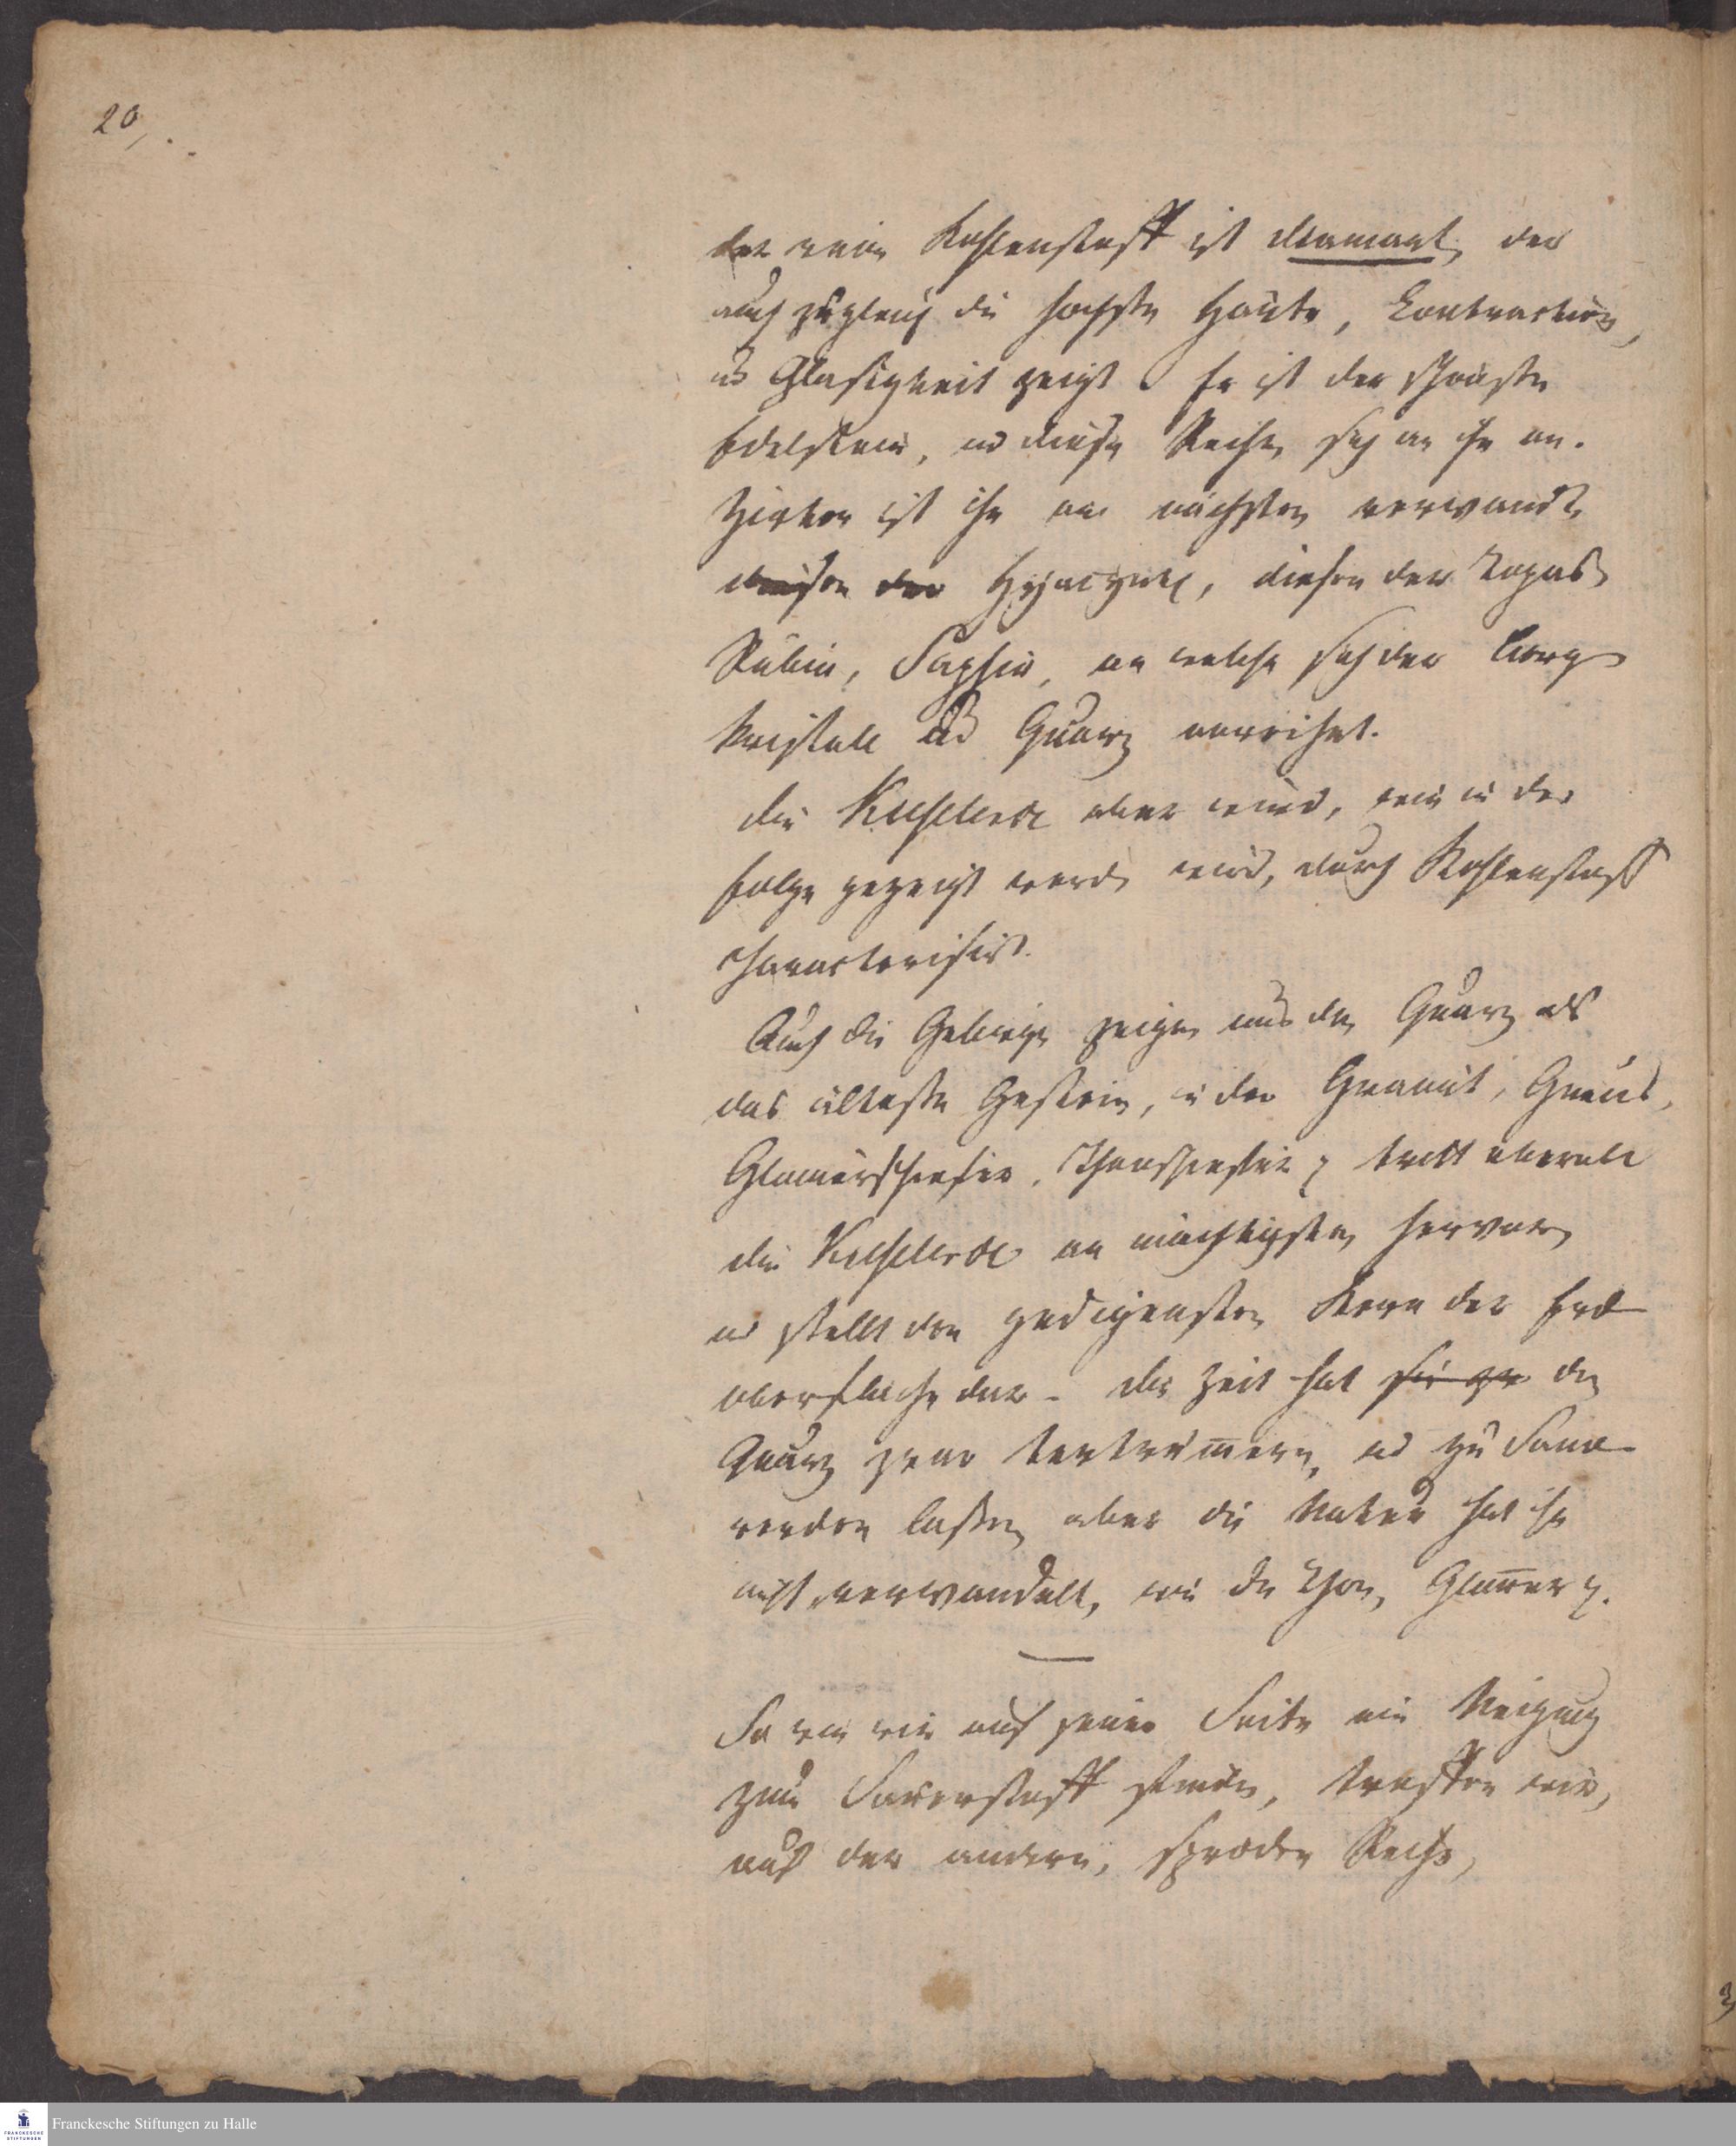 20,.
der reine Kohlenstoff ist Diamant, der
auch zugleich die höchste Härte, Contraction,
und Glasigkeit zeigt. Er ist der schönste
Edelstein, und diese Reihen sich an ihn an.
Zirkon ist ihm am nächsten verwandt,
diesen der Hyacynth, diesen der Topas,
Rubin, Saphir, an welche sich der Berg
kristall und Quarz anreihet.
die Kieselerde aber wird, wie in der
Folge gezeigt werden wird, durch Kohlenstoff
characterisirt.
Auch die Gebirge zeigen uns den Quarz als
das älteste Gestein, in den Granit, Gneus,
Glimmerschiefer, Thonschiefer tritt überall
die Kieselerde am mächtigsten hervor,
und stellt den gediegensten Kern der Erd
oberfläche dar. die Zeit hat sie zu den
Quarz zwar zertrümern, und zu Sand
werden lassen, aber die Natur hat ihn
nicht verwandelt, wie den Thon, Glimer
So wie wir auf jener Seite eine Neigung
zum Sauerstoff finden, treffen wir,
auf der andern, spröden Reihe,
Franckesche Stiftungen zu Halle